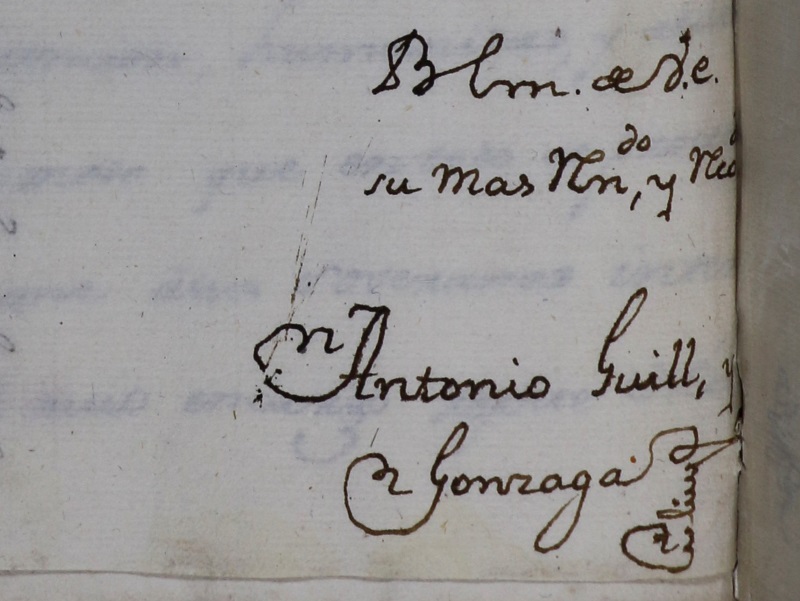 B lm. de V.e.
su mas Rn,do y
Antonio Guill, y
Gonzaga